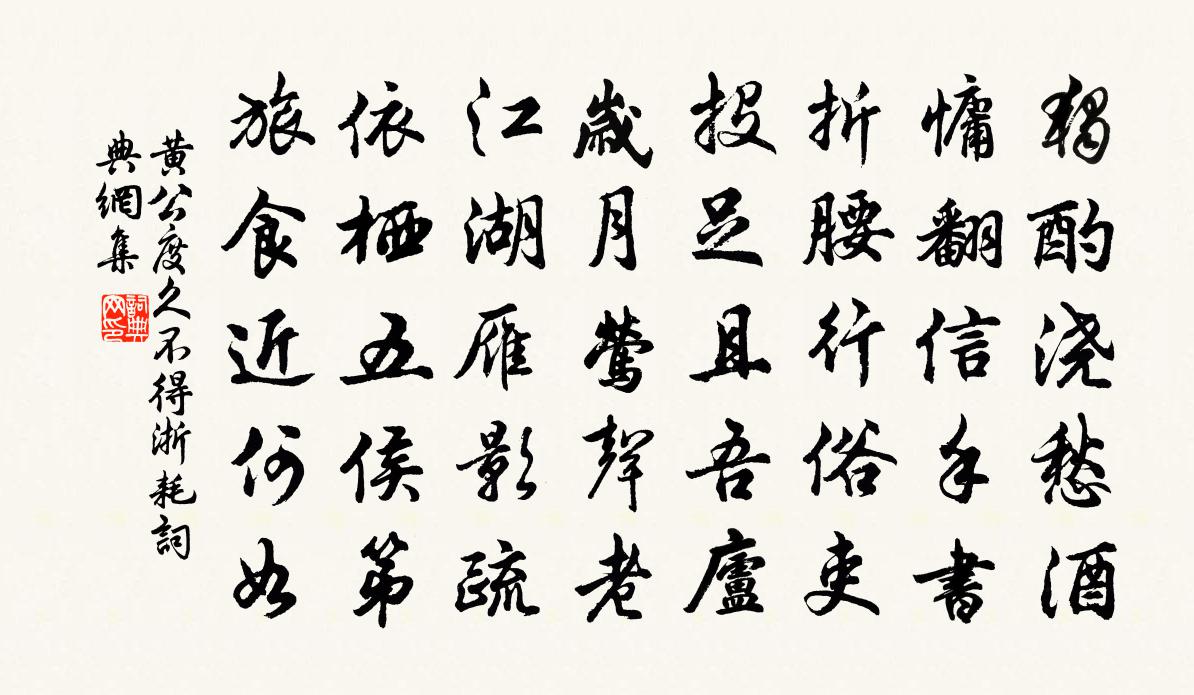 獨酌浇愁酒
慵翻信手書
折腰行俗吏
投足且吾廬
歲月鶯聲老
江湖雁影疏
依栖五侯第
旅食近何如
黄公度久不得浙耗詞
典網集
詞典网印